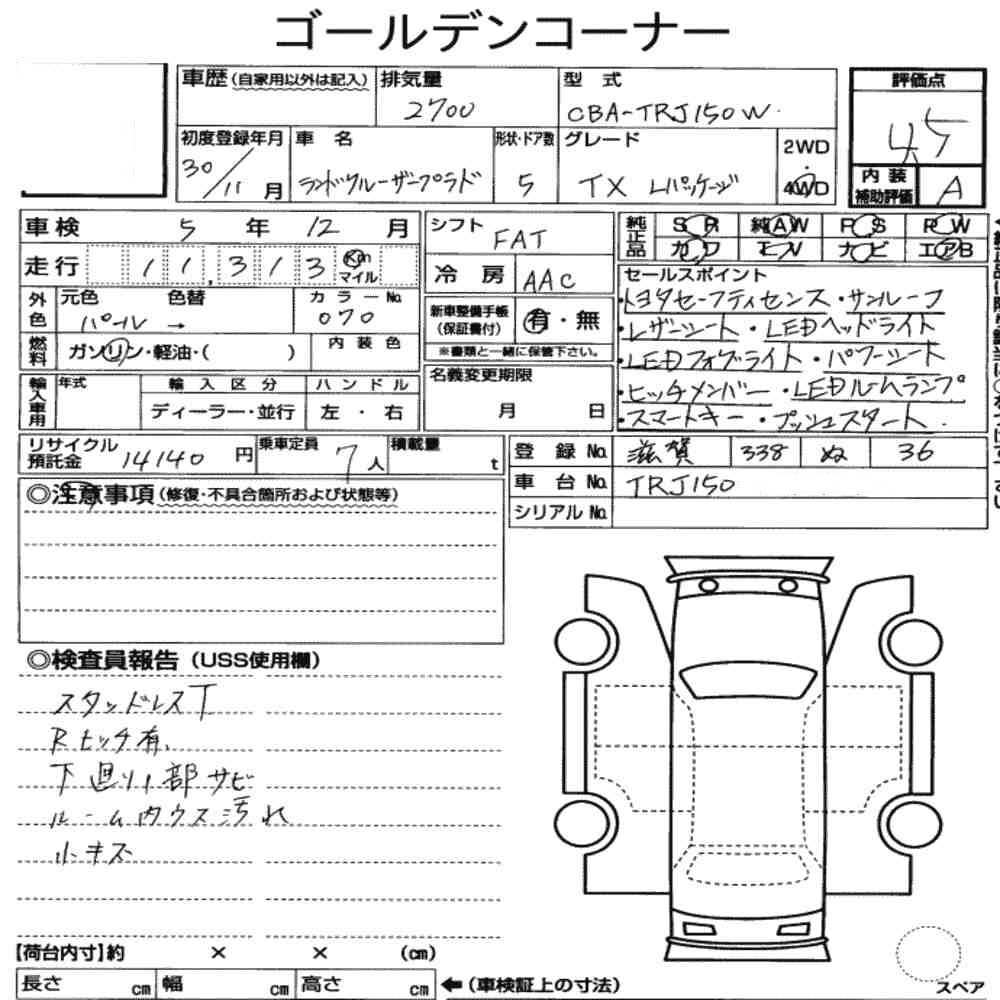 ゴールデンコーナー
車歴(自家用以外は記入) 排気量 型 式 評価点
2700 CBA-TRJ150W 4.5
初度登録年月 車 名 形状・ドア数 グレード 2WD・4WD
30/11月 ランドクルーザープラド 5 TX Lパッケージ 内装補助評価 A
車検 5 年 12 月 シフト FAT 純正品 SR 純AW PS PW
走行 11,313 Km マイル 冷 房 AAC カワ TV ナビ エアB
外色 元色 色替 カラーNo. セールスポイント
パール → 070 新車整備手帳(保証書付) 有・無 ・トヨタセーフティセンス ・サンルーフ
燃料 ガソリン・軽油・( ) 内装色 ※書類と一緒に保管下さい。 ・レザーシート ・LEDヘッドライト
・LEDフォグライト ・パワーシート
輸入車用 年式 輸入区分 ハンドル 名義変更期限 ・ヒッチメンバー ・LEDルームランプ
ディーラー・並行 左・右 月 日 ・スマートキー ・プッシュスタート
リサイクル預託金 14140 円 乗車定員 7人 積載量 t 登 録 No. 滋賀 338 ぬ 36
車 台 No. TRJ150
◎注意事項(修復・不具合箇所および状態等) シリアル No.
◎検査員報告(USS使用欄)
スタッドレスT
Rヒッチ有
下廻り1部サビ
ルーム内ウス汚れ
小キズ
【荷台内寸】約 × × (cm)
長さ cm 幅 cm 高さ cm ←(車検証上の寸法) スペア